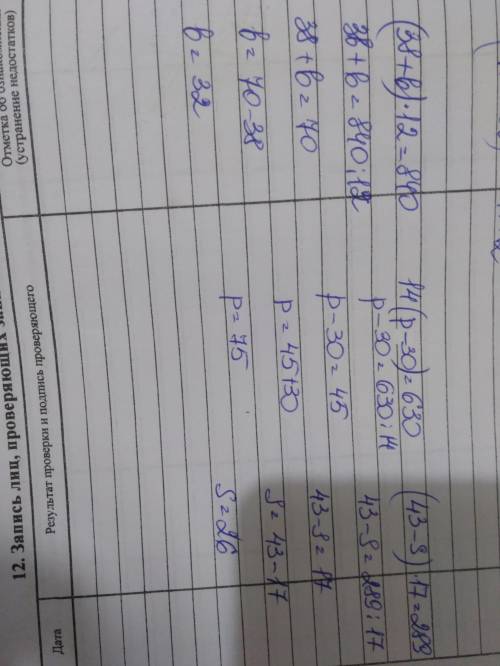 12. Запись лиц, проверяющих
Дата
Результат проверки и подпись проверяющего
Отметка об
(устранение недостатков)
(43-s)·17=289
43-s=289:17
43-s=17
s=43-17
s=26
14(p-30)=630
p-30=630:14
p-30=45
p=45+30
p=75
(38+b)·12=840
38+b=840:12
38+b=70
b=70-38
b=32